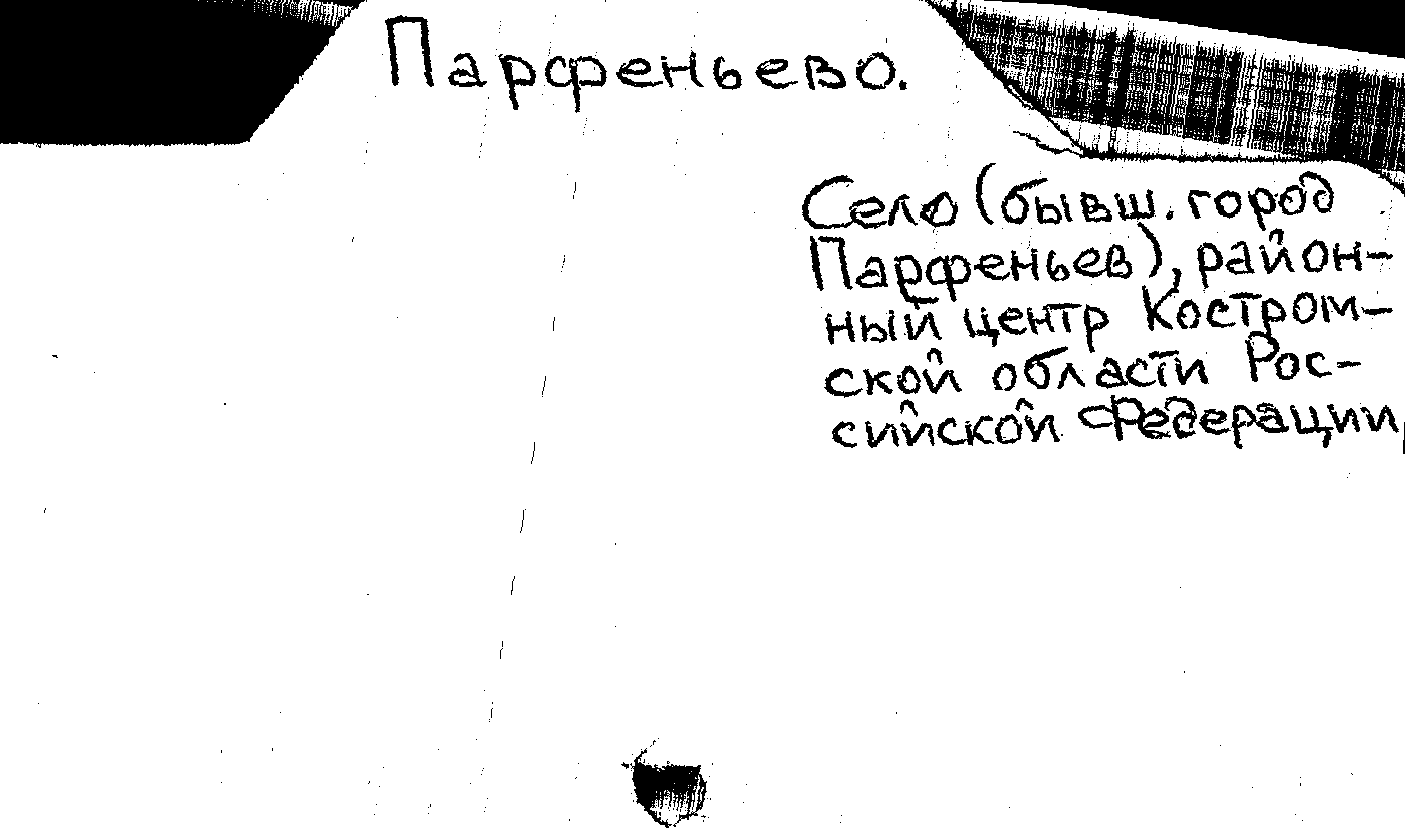 Парфеньево.
Село (бывш. город
Парфеньев), район-
ный центр Костром-
ской области Рос-
сийской Федерации